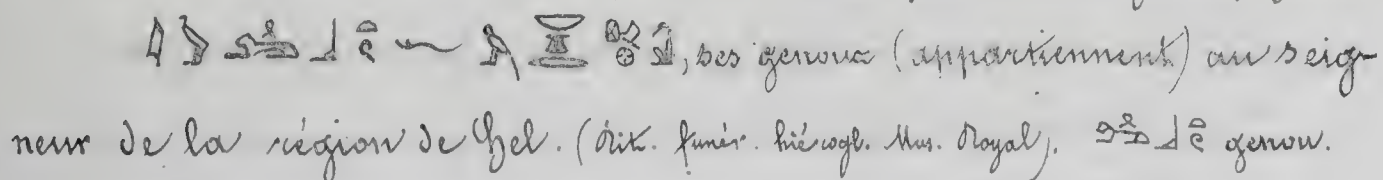 , ses genoux (appartiennent) au seig-
neur de la région de Ghel. (Rit. funér. hiérogl. Mus. Royal). genou.